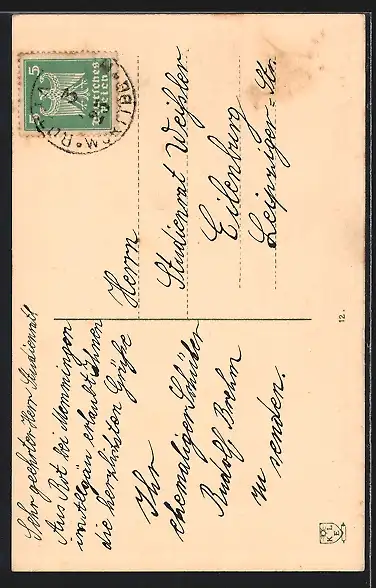 Sehr geehrter Herr Studienrat
Aus Rot bei Memmingen
im Allgäu erlaubt Ihnen
die herzlichsten Grüße
Ihr
ehemaliger Schüler
Rudolf Brehm
zu senden.
Herrn
Studienrat Weißler
Eilenburg
Leipziger-Str.
5 5
Deutsches
Reich
12.